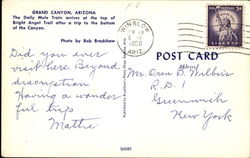 GRAND CANYON, ARIZONA
The Daily Mule Train arrives at the top of
Bright Angel Trail after a trip to the bottom
of the Canyon.
Photo by Bob Bradshaw
Did you ever
visit here Beyond
discription
Having a wonder
ful trip
Mattie
WINSLOW
1960
ARIZ.
3¢
LIBERTY
POST CARD
Address
Mr Oren B.
R.D. 1
Greenwich
New York